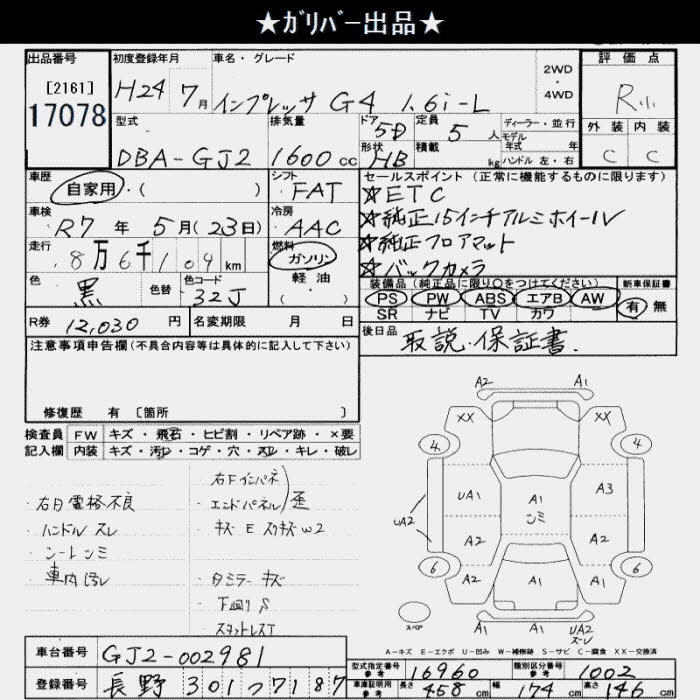 ★ガリバー出品★
出品番号
[2161]
17078
初度登録年月
H24 7月
車名・グレード
インプレッサ G4 1.6i-L
2WD
・
4WD
評価点
R小
外装 内装
C C
型式
DBA-GJ2
排気量
1600cc
ドア
5D
形状
HB
定員
5人
積載
kg
ディーラー・並行
モデル年式 年
ハンドル 左・右
車歴
自家用・( )
シフト
FAT
車検
R7年5月(23日)
冷房
AAC
走行
8万6千109km
燃料
ガソリン
軽油
( ・ )
色
黒
色替
色コード
32J
R券 12,030円
名変期限 月 日
セールスポイント(正常に機能するものに限ります)
☆ETC
☆純正15インチアルミホイール
☆純正フロアマット
☆バックカメラ
装備品(純正品に限り○をつけてください)
PS PW ABS エアB AW
SR ナビ TV カワ
新車保証書
有 無
後日品
取説・保証書.
注意事項申告欄(不具合内容等は具体的に記入して下さい)
修復歴 有 〔箇所 〕
検査員記入欄
FW キズ・飛石・ヒビ割・リペア跡・×要
内装 キズ・汚れ・コゲ・穴・スレ・キレ・破レ
・右日電格不良
・ハンドル スレ
・シートシミ
・車内汚レ
右Fインパネ
・エンドパネル)歪
・キズ E スリキズ W2
・タミラー キズ
・下回りS
・スタットレスT
A2 A1
XX XX
4 4
UA1 A1 A3
シミ
UA2
A2 A2
6 6
A2 A1 A1
スペア
A1 A1 UA2
ズレ
A-キズ E-エクボ U-凹み W-補修跡 S-サビ C-腐食 XX-交換済
車台番号
GJ2-002981
登録番号
長野 301 つ 7187
型式指定番号
参考
16960
類別区分番号
参考
1002
車庫証明用
参考
長さ 458cm 幅 174cm 高さ 146cm